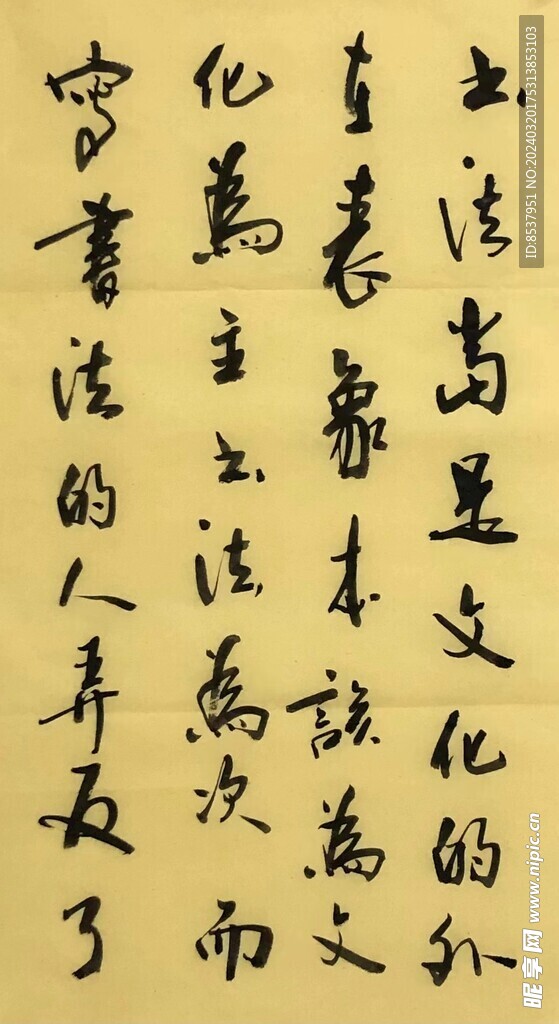 书法當是文化的外
在表象本該為文
化為主书法為次而
寫書法的人弄反了
ID:8537951 NO:20240320175313853103
昵享网 www.nipic.cn